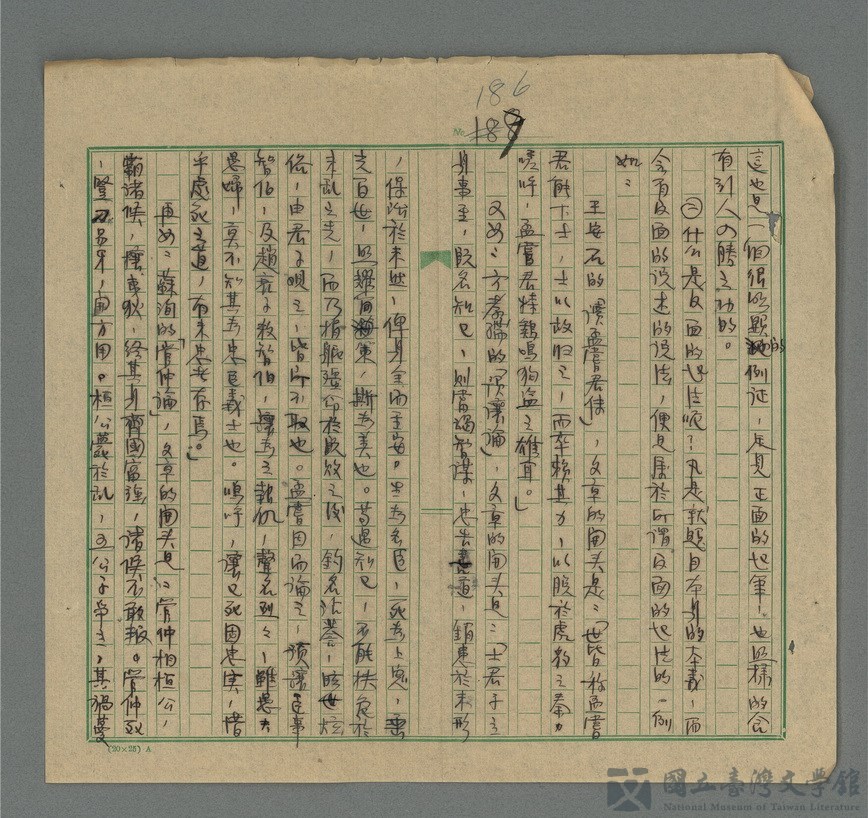 186
No. 189
這也是一個很明顯的例証，足見正面的起筆，也照樣的會
有引人入勝之功的。
㊁什么是反面的起法呢？凡是就題目本身的本義，而
含有反面的說述的說法，便是屬於所謂反面的起法的。例
如：
王安石的「讀孟嘗君傳」，文章的開头是：「世皆称孟嘗
君能下士，士以故归之，而卒賴其力，以脫於虎豹之秦。
嗟呼，孟嘗君特鷄鳴狗盜之雄耳。」
又如：方孝孺的「豫讓論」，文章的開头是：「士君子立
身事主，既名知己，則當竭智謀，忠告善道，銷患於未形
，保治於未然，俾身全而主安。生為名臣，死為上鬼，垂
光百世，照耀簡策，斯為美也。苟遇知己，不能扶危於
未亂之先，而乃捐軀殞命於既敗之後，釣名沽譽，眩世炫
俗，由君子觀之，皆所不取也。盖嘗因而論之，豫讓臣事
智伯，及趙襄子殺智伯，讓為之報仇，聲名烈烈，雖愚夫
愚婦，莫不知其為忠臣義士也。嗚呼，讓之死固忠矣，惜
乎處死之道，有未忠者存焉。」
再如：蘇洵的「管仲論」，文章的開头是：「管仲相桓公，
霸諸侯，攘夷狄，終其身齊國富強，諸侯不敢叛。管仲死
，豎刁易牙，開方用。桓公薨於亂，五公子爭立，其禍蔓
(20×25) A
國立臺灣文學館
National Museum of Taiwan Literature